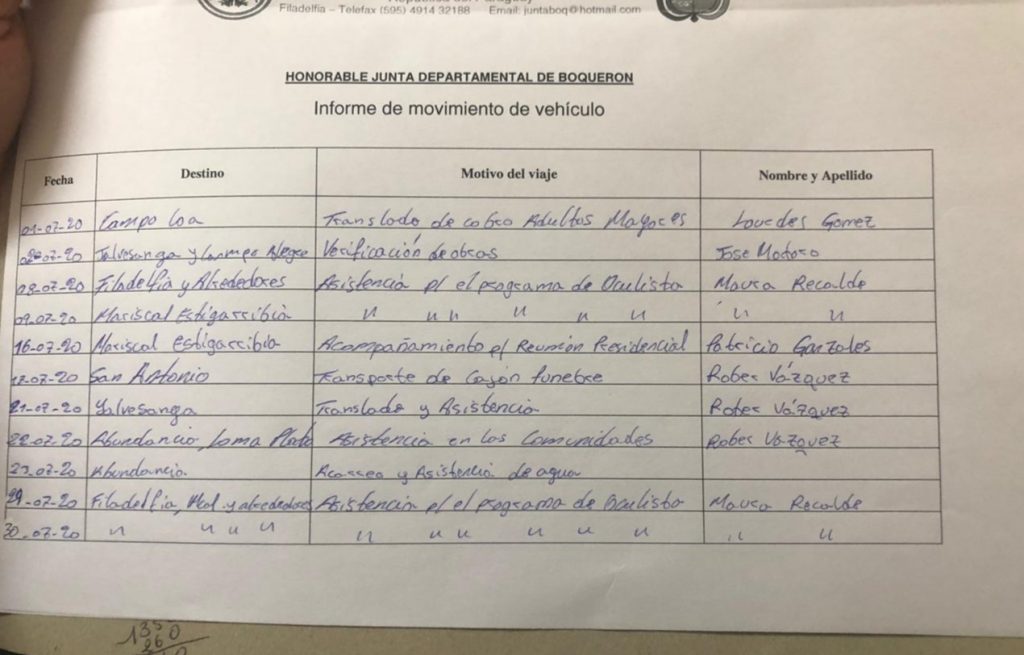 Filadelfia – Telefax (595) 4914 32188 Email: juntaboq@hotmail.com
HONORABLE JUNTA DEPARTAMENTAL DE BOQUERON
Informe de movimiento de vehículo
Fecha Destino Motivo del viaje Nombre y Apellido
01-07-20 Campo Loa Translado de cobro Adultos Mayores Lourdes Gomez
07-20 Yalvesanga y Campo Alegre Verificación de obras Jose Modoso
08-07-20 Filadelfia y Alrededores Asistencia p/ el programa de Oculista Maura Recalde
09-07-20 Mariscal Estigarribia " " " " " " " "
16-07-20 Mariscal Estigarribia Acompañamiento p/ Reunión Presidencial Patricio Gonzales
-07-20 San Antonio Transporte de Cajón funebre Rober Vázquez
21-07-20 Yalvesanga Translado y Asistencia Rober Vázquez
22-07-20 Abundancia, Loma Plata Asistencia en las Comunidades Rober Vázquez
23-07-20 Abundancia Acarreo y Asistencia de agua
29-07-20 Filadelfia, Mcal. y alrededores Asistencia p/ el programa de Oculista Maura Recalde
30-07-20 " " " " " " " " " " " "
1350
260